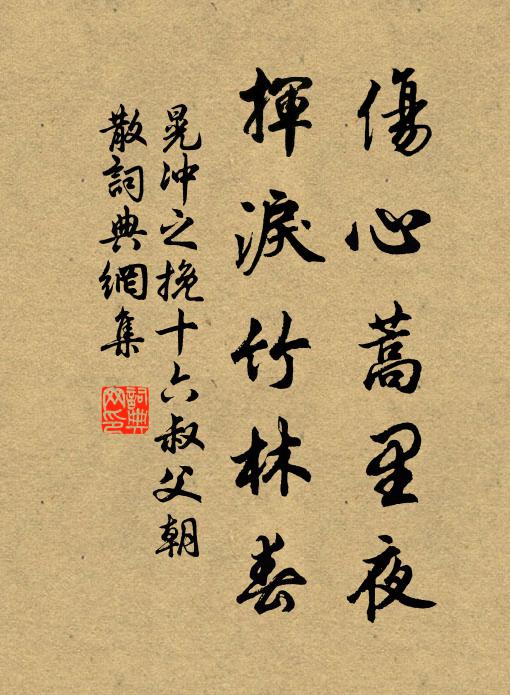 傷心蒿里夜
揮淚竹林春
晁沖之挽十六叔父朝
散詞典網集
詞典網印